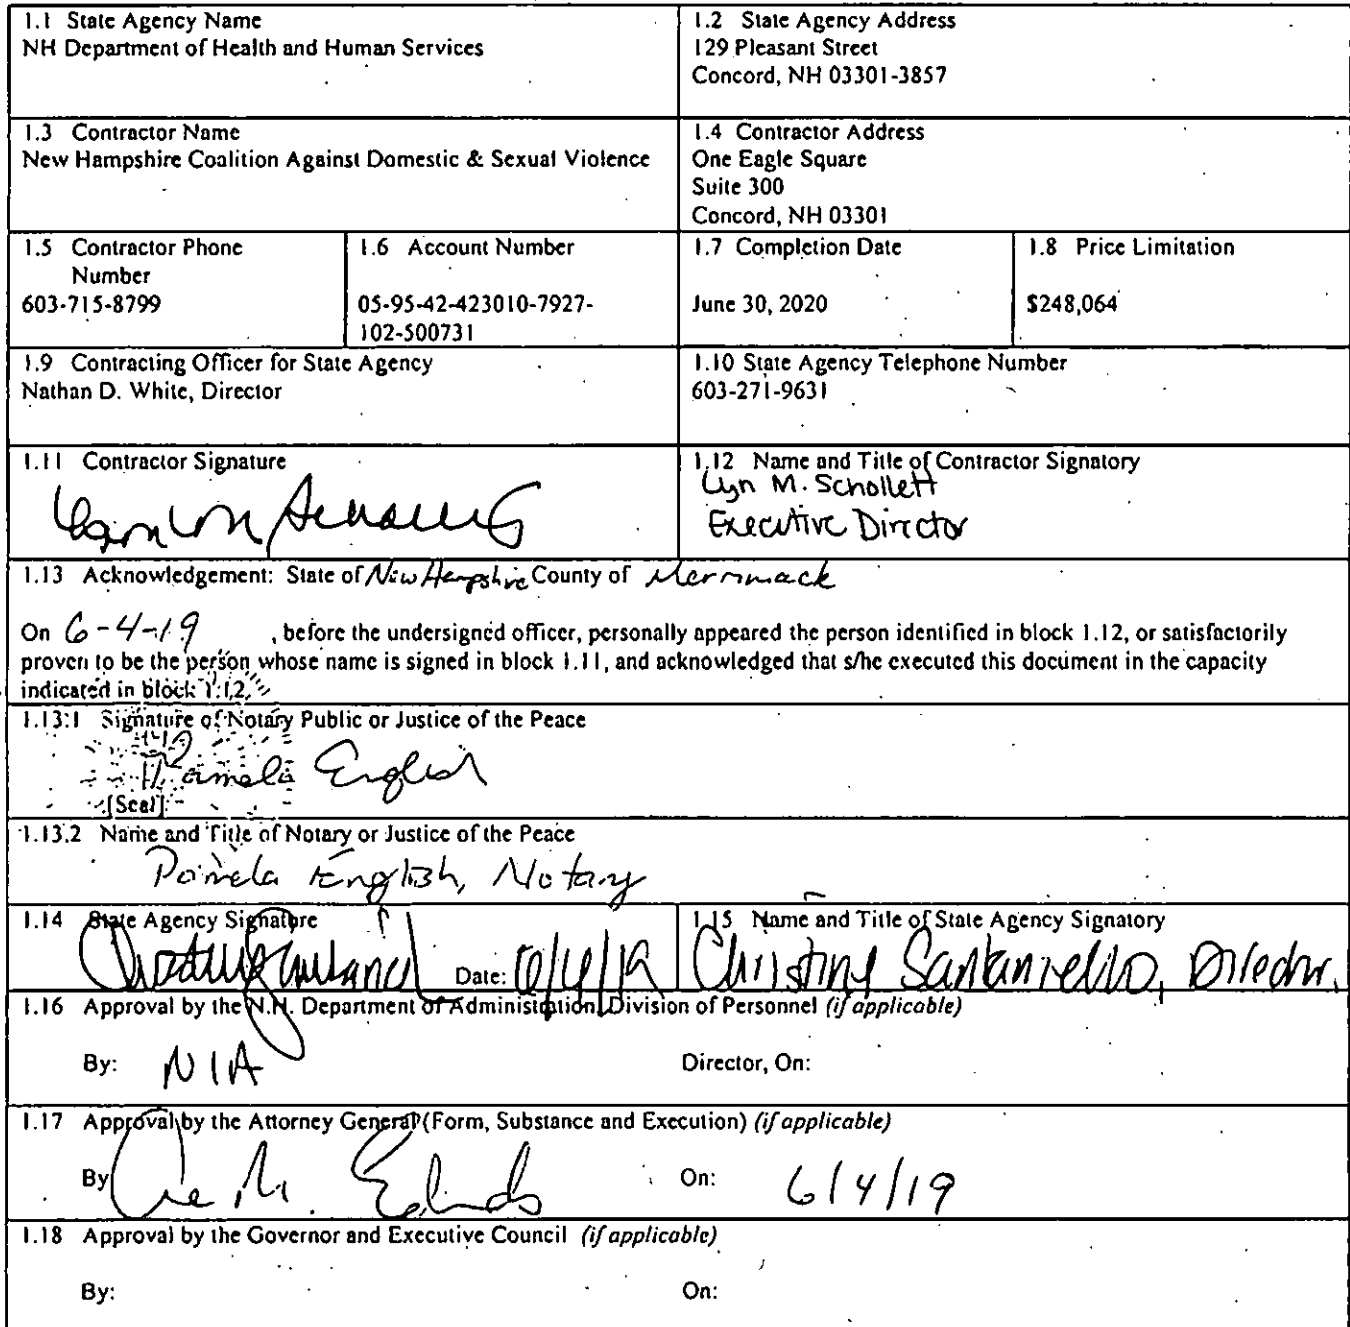 1.1 State Agency Name
NH Department of Health and Human Services
1.2 State Agency Address
129 Pleasant Street
Concord, NH 03301-3857
1.3 Contractor Name
New Hampshire Coalition Against Domestic & Sexual Violence
1.4 Contractor Address
One Eagle Square
Suite 300
Concord, NH 03301
1.5 Contractor Phone
Number
603-715-8799
1.6 Account Number
05-95-42-423010-7927-
102-500731
1.7 Completion Date
June 30, 2020
1.8 Price Limitation
$248,064
1.9 Contracting Officer for State Agency
Nathan D. White, Director
1.10 State Agency Telephone Number
603-271-9631
1.11 Contractor Signature
1.12 Name and Title of Contractor Signatory
Lyn M. Schollett
Executive Director
1.13 Acknowledgement: State of New Hampshire County of Merrimack
On 6-4-19 , before the undersigned officer, personally appeared the person identified in block 1.12, or satisfactorily
proven to be the person whose name is signed in block 1.11, and acknowledged that s/he executed this document in the capacity
indicated in block 1.12.
1.13.1 Signature of Notary Public or Justice of the Peace
Pamela English
[Seal]
1.13.2 Name and Title of Notary or Justice of the Peace
Pamela English, Notary
1.14 State Agency Signature
Date: 6/4/19
1.15 Name and Title of State Agency Signatory
Christine Santaniello, Director.
1.16 Approval by the N.H. Department of Administration, Division of Personnel (if applicable)
By: N/A
Director, On:
1.17 Approval by the Attorney General (Form, Substance and Execution) (if applicable)
By:
On: 6/4/19
1.18 Approval by the Governor and Executive Council (if applicable)
By:
On: